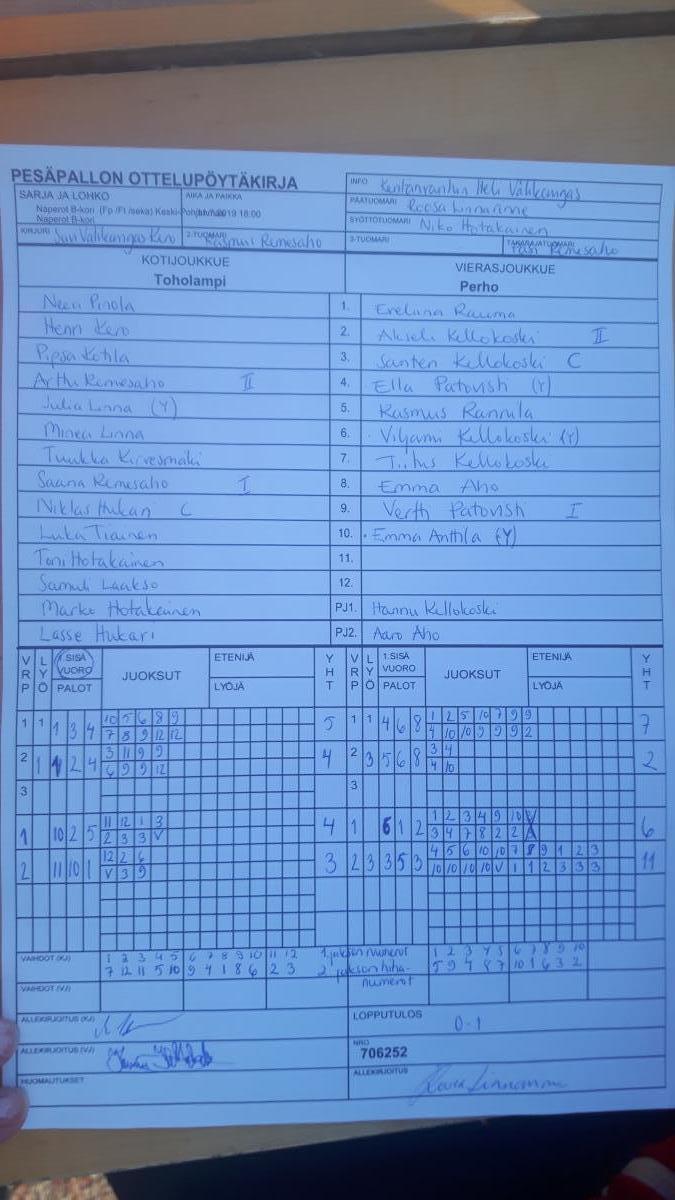 PESÄPALLON OTTELUPÖYTÄKIRJA
INFO Kentänvanhin Heli Vähkangas
SARJA JA LOHKO
AIKA JA PAIKKA
PÄÄTUOMARI Roosa Linnarinne
Naperot B-kori (Fp /Fl /seka) Keski-Pohj 2019 18:00
Naperot B-kori
SYÖTTÖTUOMARI Niko Hotakainen
KIRJURI Suvi Vähkangas Kero 2-TUOMARI Rasmus Remesaho
3-TUOMARI TAKARAJATUOMARI Pasi Remesaho
KOTIJOUKKUE
Toholampi
VIERASJOUKKUE
Perho
Neea Pirola 1. Eveliina Rauma
Henri Kero 2. Akseli Kellokoski II
Pipsa Kotila 3. Santeri Kellokoski C
Arttu Remesaho II 4. Ella Patovisti (Y)
Julia Linna (Y) 5. Rasmus Rannila
Minea Linna 6. Viljami Kellokoski (Y)
Tuukka Kirvesmäki 7. Tiitus Kellokoski
Saana Remesaho I 8. Emma Aho
Niklas Hukari C 9. Verth Patovisti I
Luka Tiainen 10. Emma Anttila (Y)
Toni Hotakainen 11.
Samuli Laakso 12.
Marko Hotakainen PJ1. Hannu Kellokoski
Lasse Hukari PJ2. Aaro Aho
VRP LYÖ SISÄVUORO PALOT JUOKSUT ETENIJÄ LYÖJÄ YHT
VRP LYÖ 1.SISÄVUORO PALOT JUOKSUT ETENIJÄ LYÖJÄ YHT
1 1 1 3 4 10 5 6 8 9 5 1 1 4 6 8 1 2 5 10 7 9 9 7
7 8 9 12 12 4 10 10 9 9 9 2
2 1 1 2 4 3 11 9 9 4 2 3 5 6 8 3 4 2
6 9 9 12 4 10
3 3
1 10 2 5 11 12 1 3 4 1 6 1 2 1 2 3 4 9 10 V 6
2 3 3 V 3 4 7 8 2 2
2 11 10 1 12 2 6 3 2 3 3 5 3 4 5 6 10 10 7 8 9 1 2 3 11
V 3 9 10 10 10 10 V 1 1 2 3 3 3
VAIHDOT (KJ) 1 2 3 4 5 6 7 8 9 10 11 12 1. jakson numerot 1 2 3 4 5 6 7 8 9 10
7 12 11 5 10 9 4 1 8 6 2 3 2. jakson hihanumerot 5 9 4 8 7 10 1 6 3 2
VAIHDOT (VJ)
ALLEKIRJOITUS (KJ)
LOPPUTULOS 0-1
ALLEKIRJOITUS (VJ)
NRO 706252
HUOMAUTUKSET
ALLEKIRJOITUS